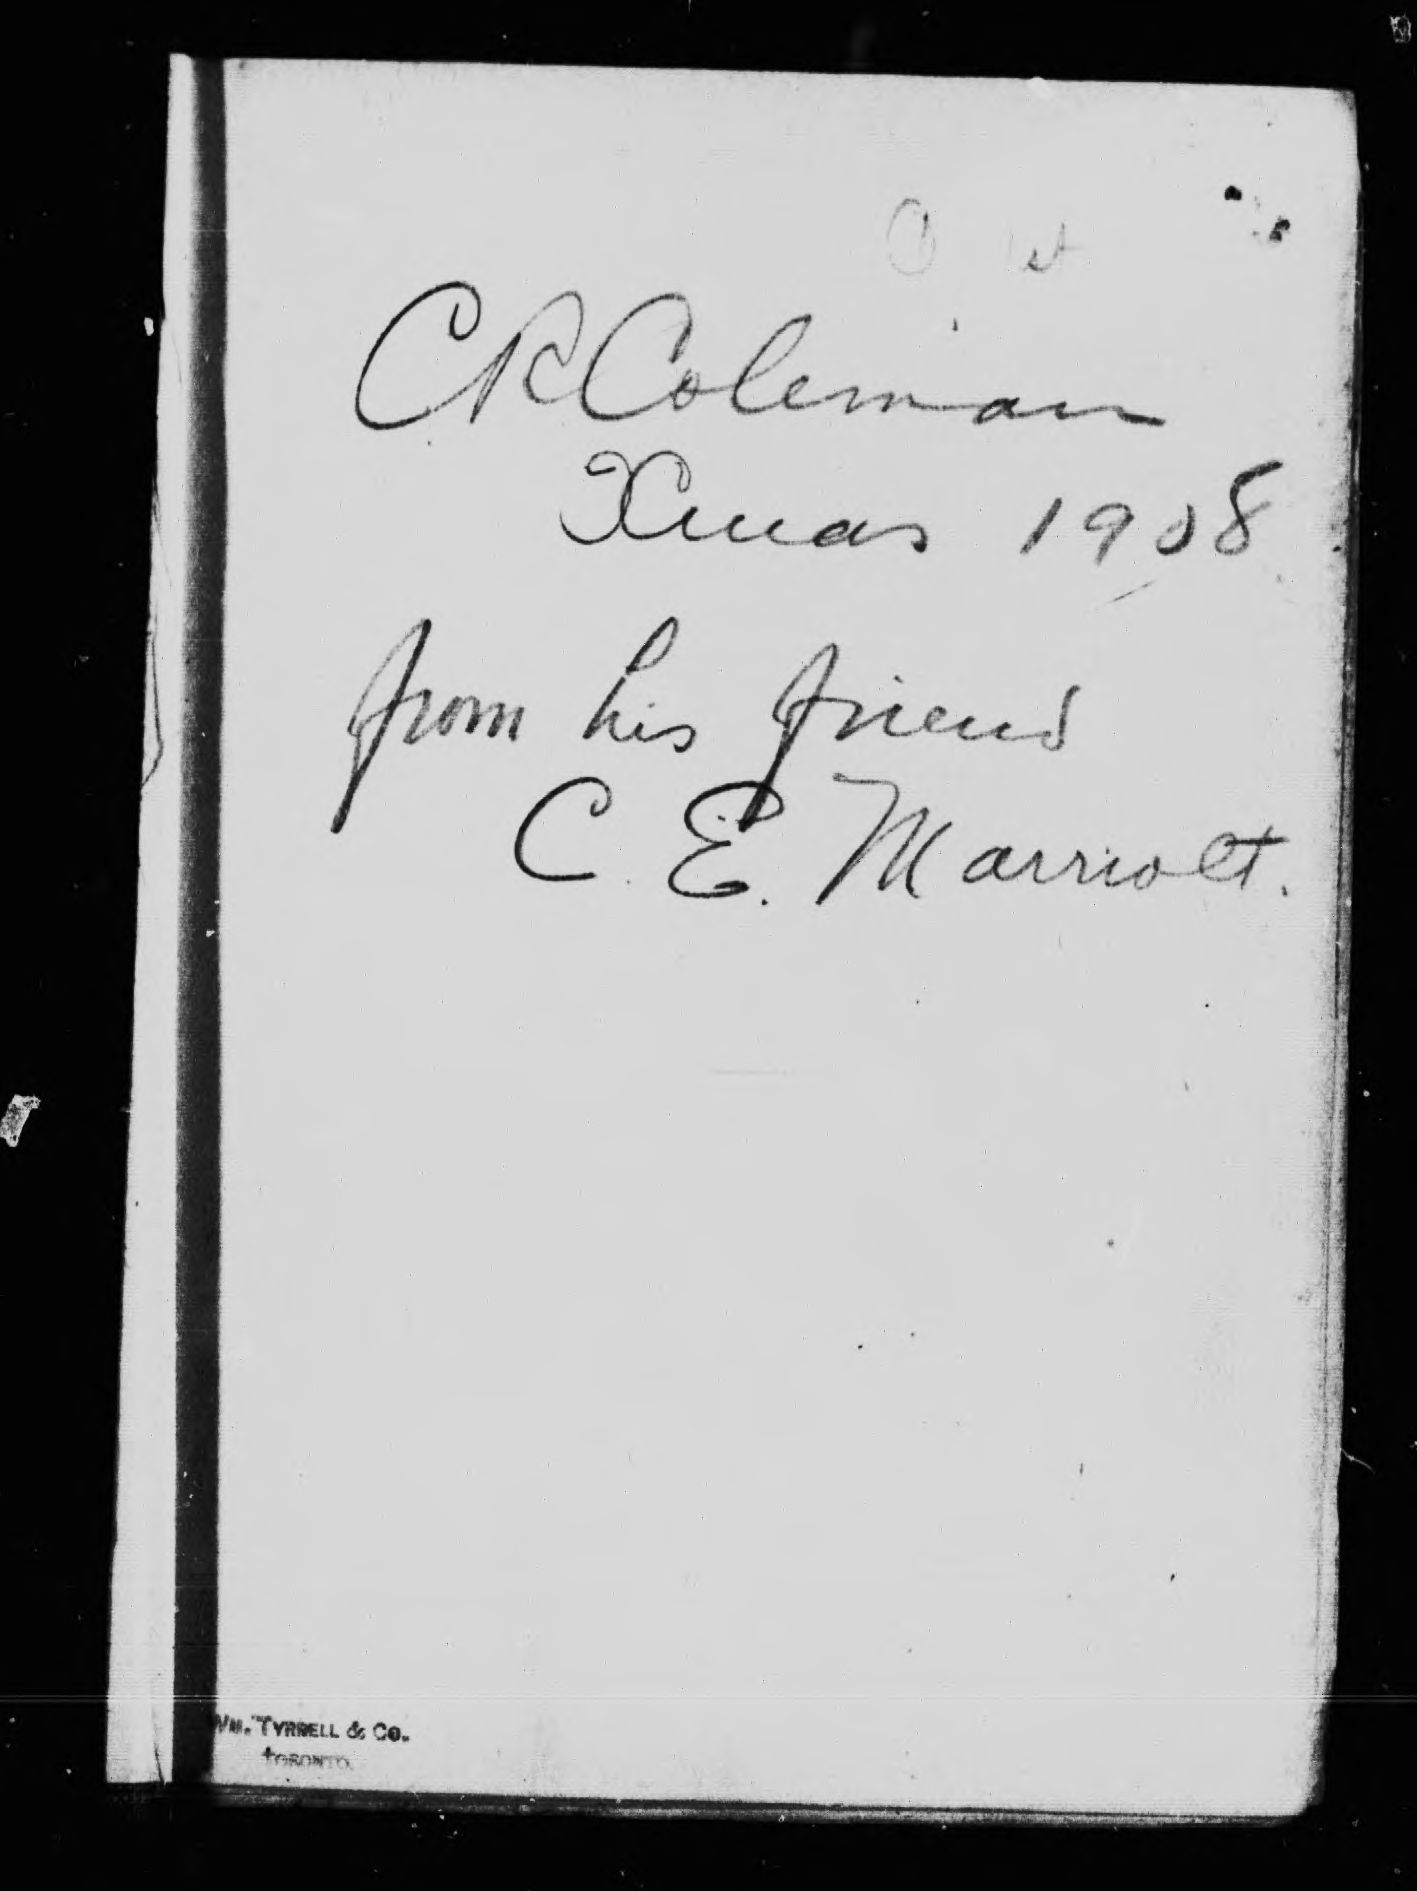 C R Coleman
Xmas 1908
from his friend
C. E. Marriott.
Wm. Tyrrell & Co.
Toronto.